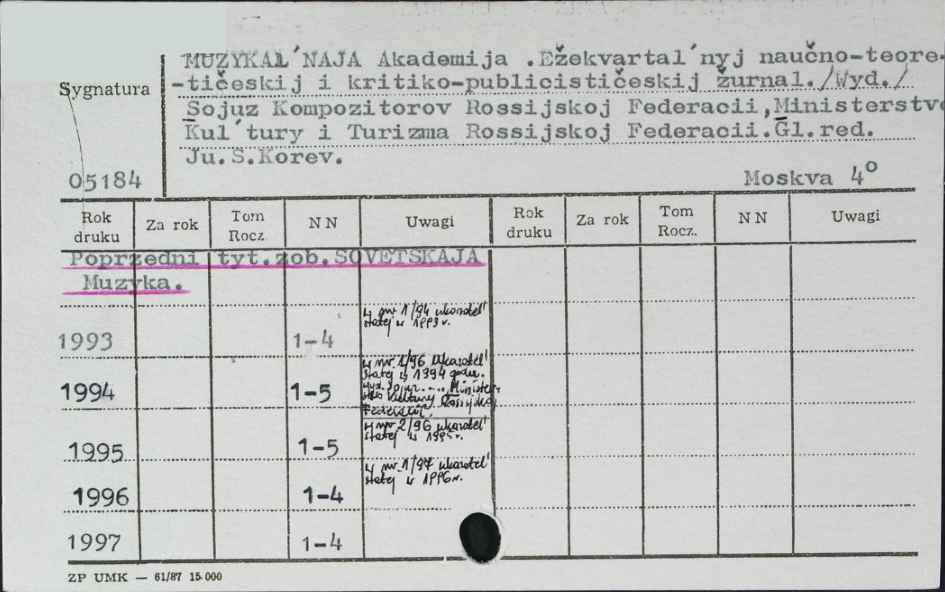 MUZYKAL´NAJA Akademija .Ežekvartal´nyj naučno-teore-
-tičeskij i kritiko-publicističeskij žurnal./Wyd./
Sygnatura
Sojuz Kompozitorov Rossijskoj Federacii,Ministerstvo
Kul´tury i Turizma Rossijskoj Federacii.Gl.red.
Ju.S.Korev.
05184 Moskva 4º
Rok druku Za rok Tom Rocz. NN Uwagi Rok druku Za rok Tom Rocz. NN Uwagi
Poprzedni tyt.zob.SOVETSKAJA
Muzyka.
w nr 1/94 ukazatel'
statej w 1993 r.
1993 1-4
w nr 2/96 ukazatel'
statej w 1994 godu.
1994 1-5
Wyd. Sojuz .... Minister-
stvo Kultury Rossijskoj
Federacii.
w nr 2/96 ukazatel'
statej w 1995 r.
1995 1-5
w nr 1/97 ukazatel'
statej w 1996 r.
1996 1-4
1997 1-4
ZP UMK — 61/87 15 000